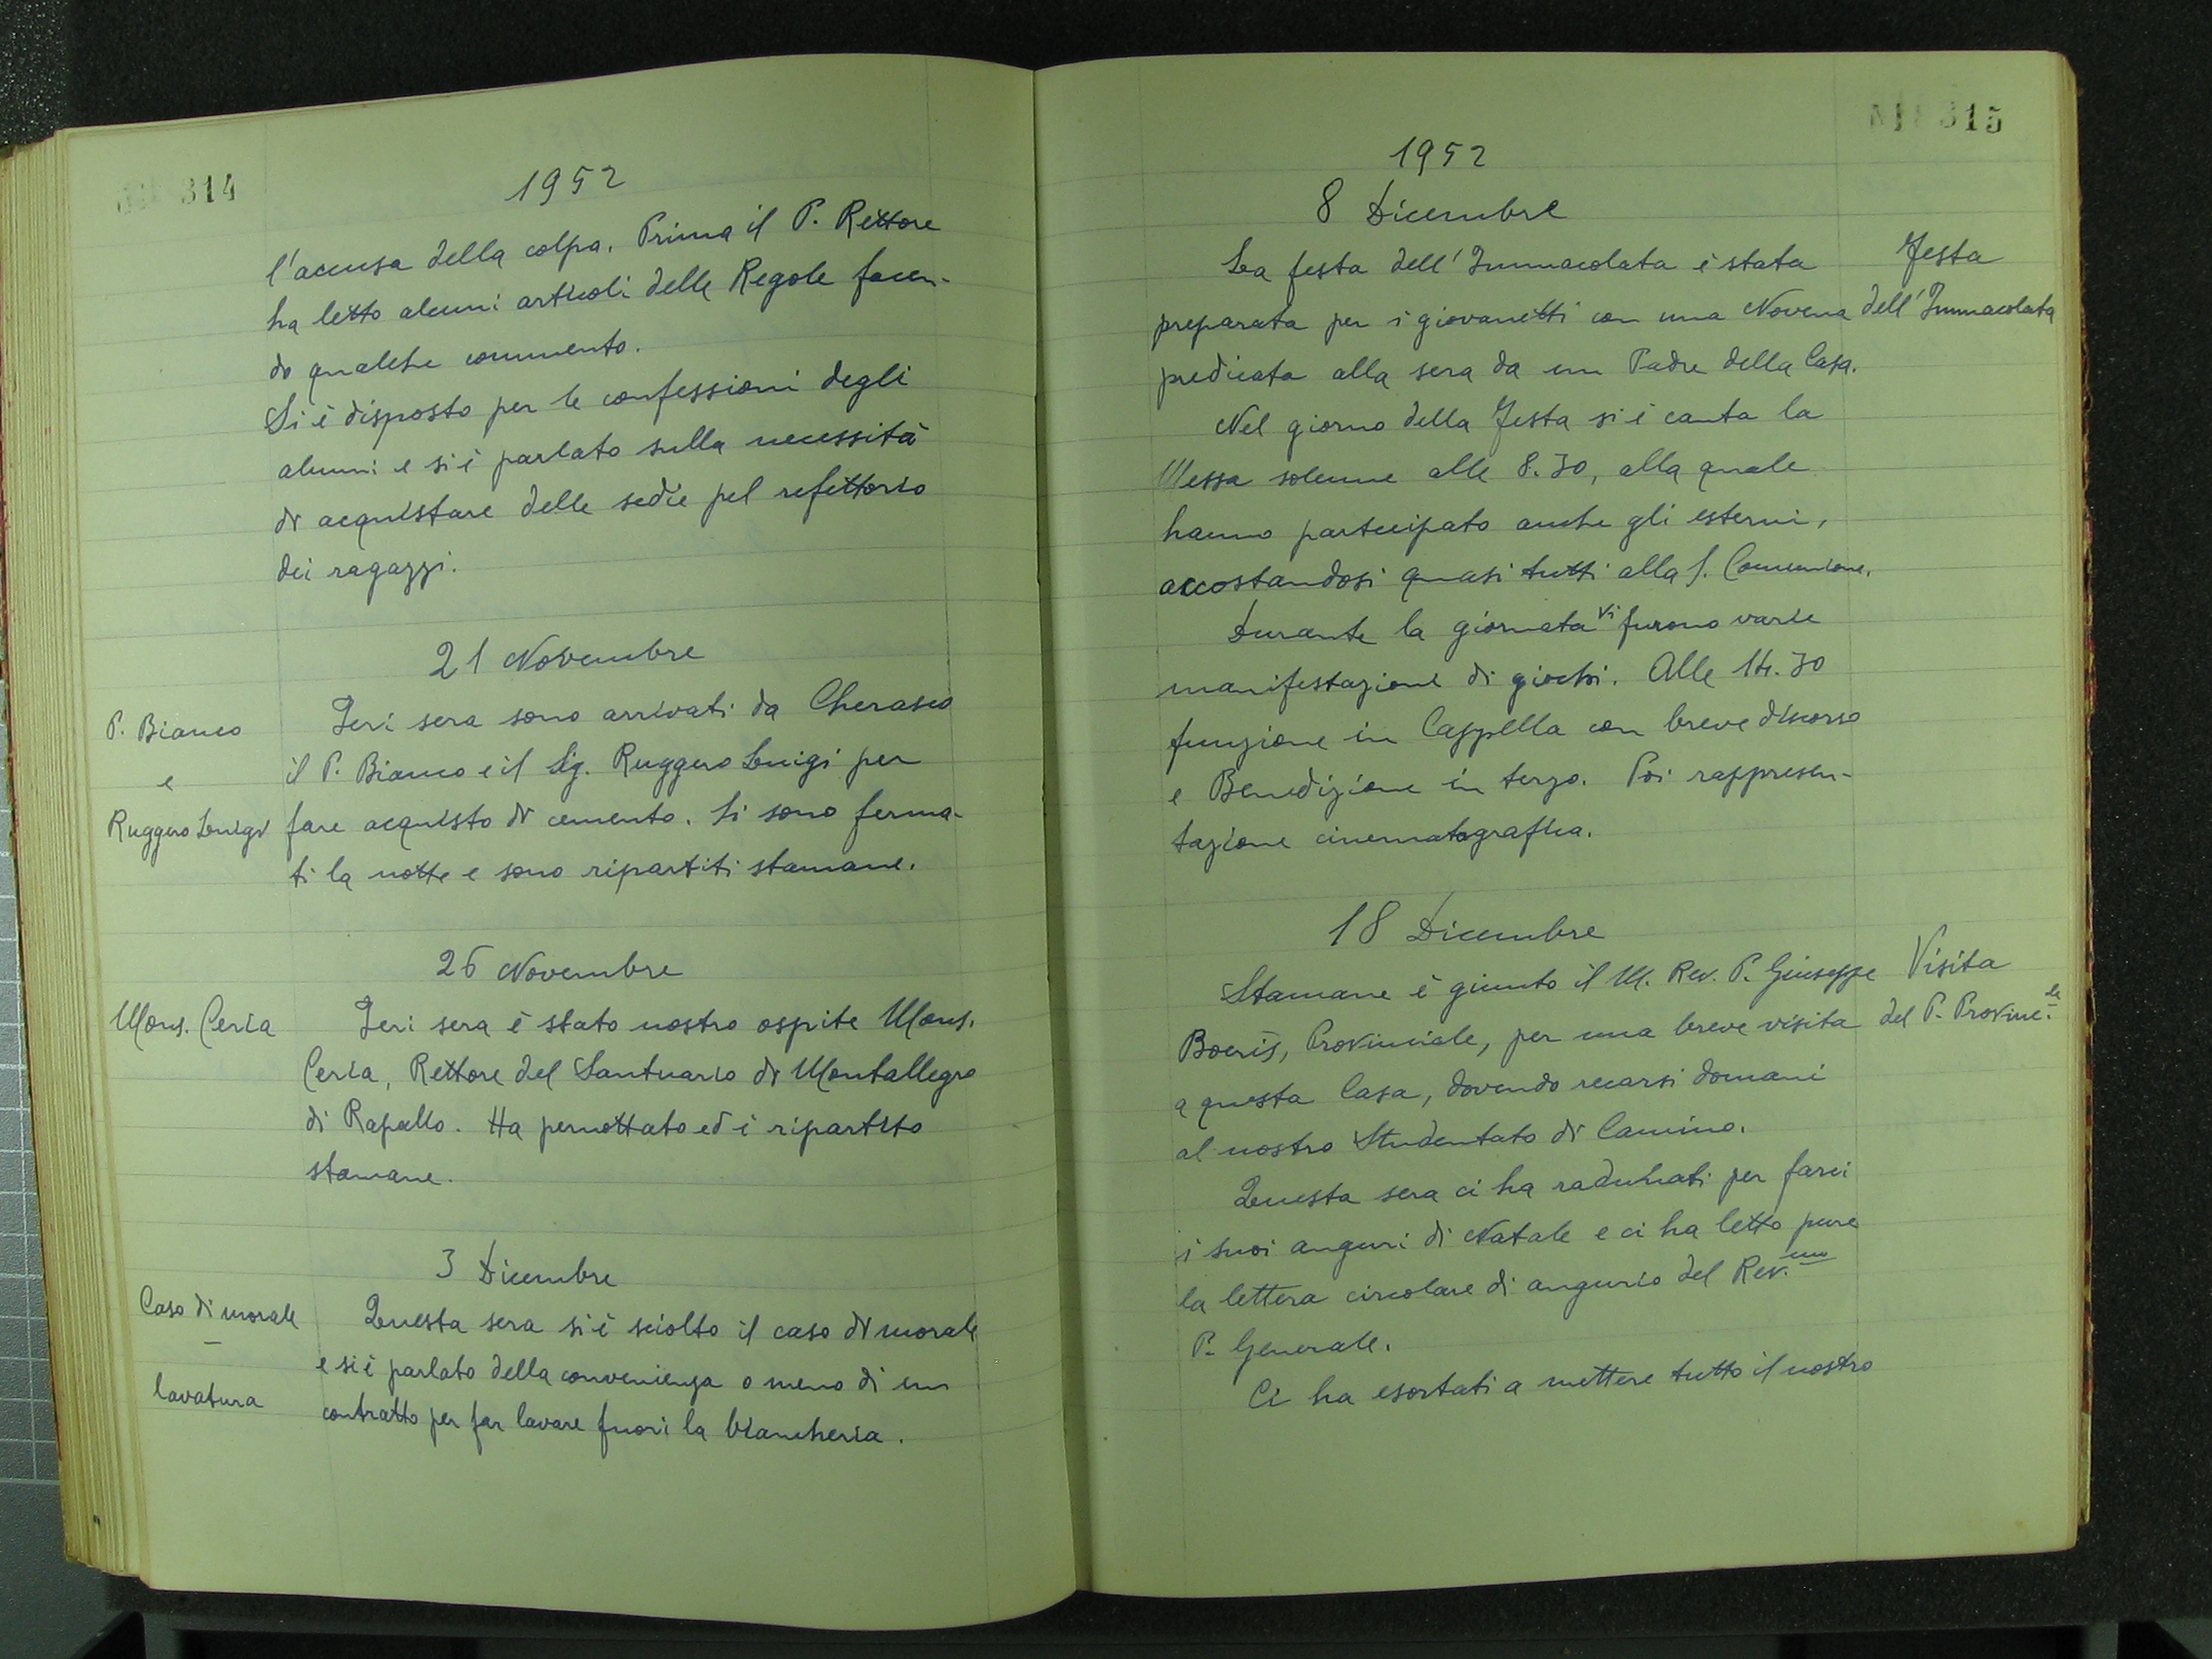 314
1952
l'accusa della colpa. Prima il P. Rettore
ha letto alcuni articoli delle Regole facen-
do qualche commento.
Si è disposto per le confessioni degli
alunni e si è parlato sulla necessità
di acquistare delle sedie pel refettorio
dei ragazzi.
21 Novembre
P. Bianco
e
Ruggero Luigi
Ieri sera sono arrivati da Cherasco
il P. Bianco e il Sig. Ruggero Luigi per
fare acquisto di cemento. Si sono ferma-
ti la notte e sono ripartiti stamane.
26 Novembre
Mons. Ceria
Ieri sera è stato nostro ospite Mons.
Ceria, Rettore del Santuario di Montallegro
di Rapallo. Ha pernottato ed è ripartito
stamane.
3 Dicembre
Caso di morale
–
lavatura
Questa sera si è sciolto il caso di morale
e si è parlato della convenienza o meno di un
contratto per far lavare fuori la biancheria.
315
1952
8 Dicembre
Festa
dell'Immacolata
La festa dell'Immacolata è stata
preparata per i giovanetti con una Novena
predicata alla sera da un Padre della Casa.
Nel giorno della Festa si è canta la
Messa solenne alle 8.30, alla quale
hanno partecipato anche gli esterni,
accostandosi quasi tutti alla S. Comunione.
Durante la giornata vi furono varie
manifestazioni di giochi. Alle 14.30
funzione in Cappella con breve discorso
e Benedizione in terzo. Poi rappresen-
tazione cinematografica.
18 Dicembre
Visita
del P. Provinc.le
Stamane è giunto il M. Rev. P. Giuseppe
Boeris, Provinciale, per una breve visita
a questa Casa, dovendo recarsi domani
al nostro Studentato di Camino.
Questa sera ci ha radunati per farci
i suoi auguri di Natale e ci ha letto pure
la lettera circolare di augurio del Rev.mo
P. Generale.
Ci ha esortati a mettere tutto il nostro